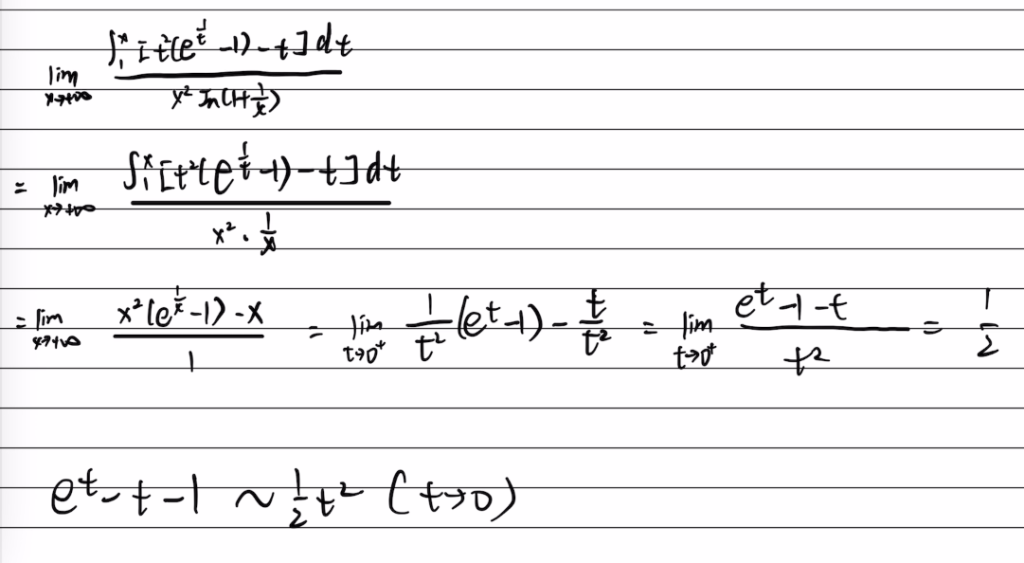 lim_{x→+∞} \frac{∫_1^x [t²(e^{\frac{1}{t}} -1) - t] dt}{x² ln(1+\frac{1}{x})}
= lim_{x→+∞} \frac{∫_1^x [t²(e^{\frac{1}{t}} -1) - t] dt}{x² · \frac{1}{x}}
= lim_{x→+∞} \frac{x²(e^{\frac{1}{x}} -1) - x}{1} = lim_{t→0⁺} \frac{1}{t²}(e^t -1) - \frac{t}{t²} = lim_{t→0⁺} \frac{e^t -1 - t}{t²} = \frac{1}{2}
e^t - t - 1 ~ \frac{1}{2}t² (t→0)